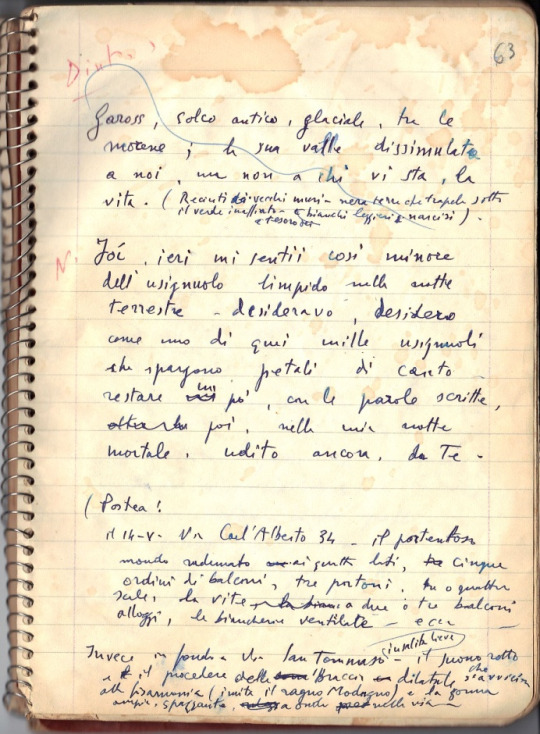 63
Gaross, solco antico, glaciale, tra le
morene; la sua valle dissimulata
a noi, ma non a chi vi sta, la
vita. (Recinti di vecchi muri - nera terra che trapela sotto
il verde - bianchi leggieri narcisi) -
N.
Joí, ieri mi sentii così minore
dell'usignuolo limpido nella notte
terrestre - desideravo, desidero
come uno di quei mille usignuoli
che spargono petali di canto
restare un pó, con le parole scritte,
poi, nella mia notte
mortale, udito ancora, da Te -
(Postea!
il 14-V- Via Carl'Alberto 34 - il portentoso
mondo radunato ai quattro lati, cinque
ordini di balconi, tre portoni, tre o quattro
scale, la vite a due o tre balconi
alloggi, le biancherie ventilate - ecc -
Invece in fondo a Via San Tommaso - il suono rotto
e il procedere delle braccia dilatate che s'avvicina
alla fisarmonica (imita il ragno Modugno) e la gonna
ampia, spazzante, onde nella via -